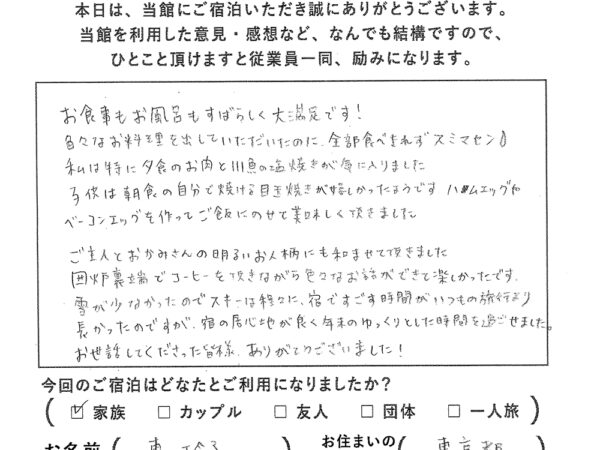 本日は、当館にご宿泊いただき誠にありがとうございます。
当館を利用した意見・感想など、なんでも結構ですので、
ひとこと頂けますと従業員一同、励みになります。
お食事もお風呂もすばらしく大満足です!
色々なお料理を出していただいたのに、全部食べきれずスミマセン
私は特に夕食のお肉と川魚の塩焼きが気に入りました
子供は朝食の自分で焼ける目玉焼きが嬉しかったようです ハムエッグや
ベーコンエッグを作ってご飯にのせて美味しく頂きました
ご主人とおかみさんの明るいお人柄にも和ませて頂きました
囲炉裏端でコーヒーを頂きながら色々なお話ができて楽しかったです。
雪が少なかったのでスキーは程々に、宿ですごす時間がいつもの旅行より
長かったのですが、宿の居心地が良く年末のゆっくりとした時間を過ごせました。
お世話してくださった皆様、ありがとうございました!
今回のご宿泊はどなたとご利用になりましたか?
( ☑ 家族 □ カップル □ 友人 □ 団体 □ 一人旅 )
お名前 ( お住まいの ( 東京都